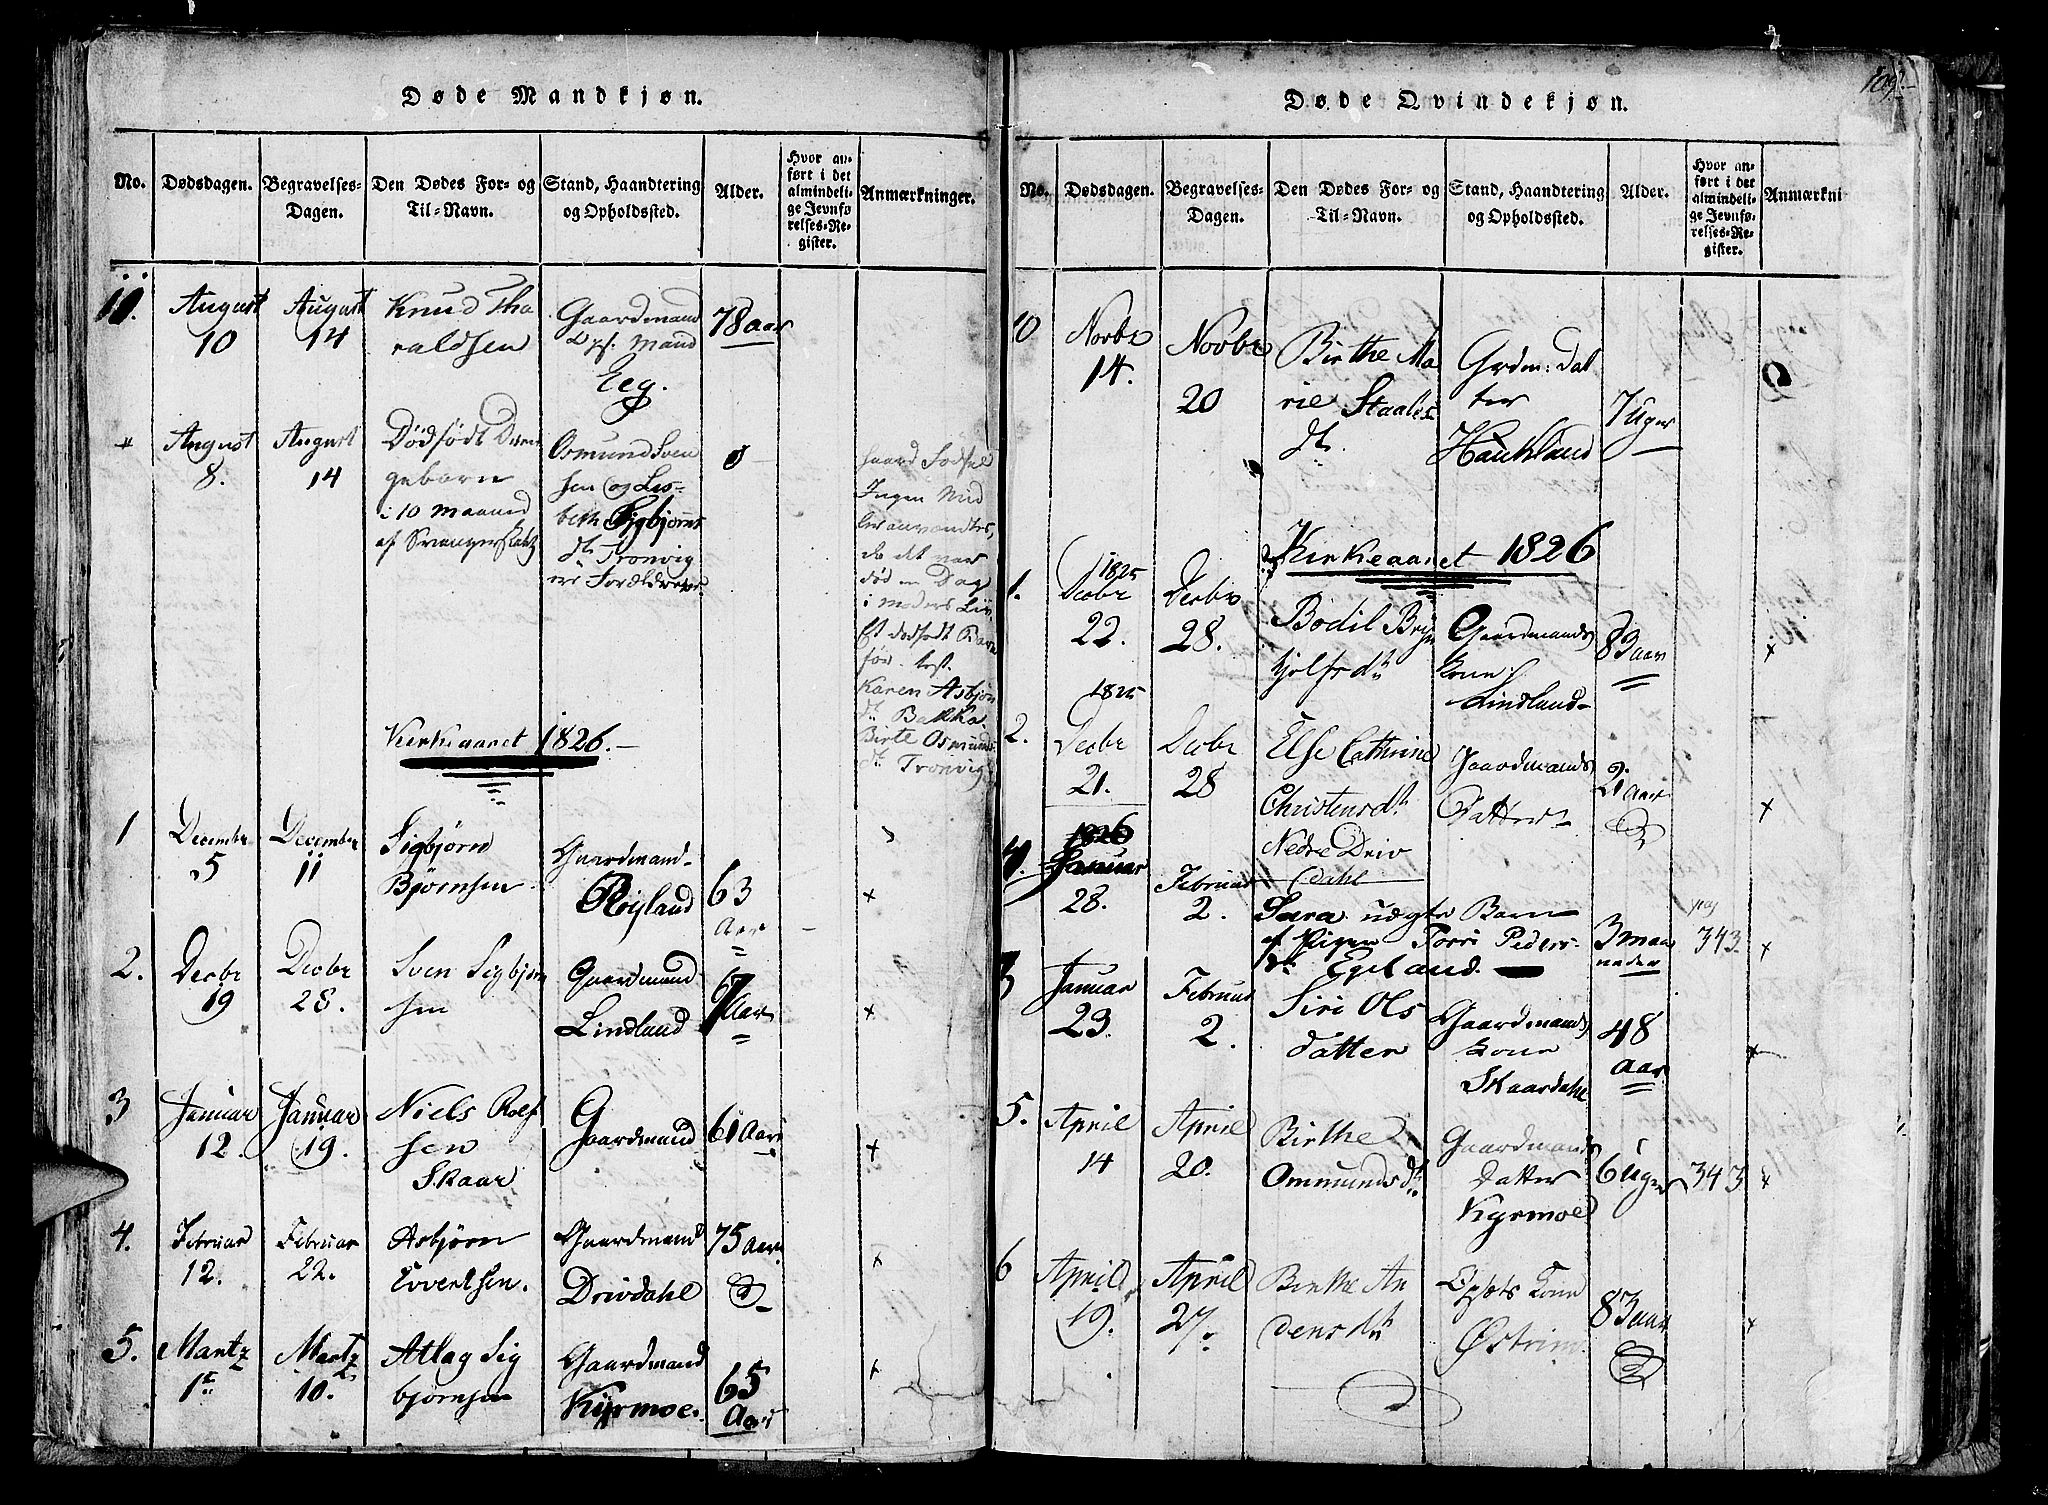 Døde Mandkjøn.
No. Dødsdagen. Begravelses-Dagen. Den Dødes For- og Til-Navn. Stand, Haandtering og Opholdssted. Alder. Hvor anført i det almindelige Jevnførelses-Register. Anmærkninger.
11. August 10 August 14 Knud Tha
raldsen Gaardmand
Eeg. 78 aar
+ August 8. August 14 Dødfødt Dreng
gebarn
i 10 Maaned
af Svangerskab Osmund Sven
sen og Lis-
beth Sigbjørns
dtr Tronvig
ere Forældrene. 0
haard Fødsel
Ingen Mid
ler anvendtes,
da det var
død en Dag
i moders Liv.
Et dødfødt Barn
test.
Karen Asbjørns
dtr Bakka.
Birte Osmunds
dtr Tronvig
Kirkeaaret 1826.
1 December 5 December 11 Sigbjørn
Bjørnsen Gaardmand
Røyland 63
Aar +
2. Decbr 19 Decbr 28. Sven Sigbjørn
sen Gaardmand
Lindland 67 Aar +
3 Januar 12. Januar 19. Niels Rolf
sen
Skaar Gaardmand 61 Aar +
4. Februar 12. Februar 22. Asbjørn
Evertsen. Gaardmand
Drivdahl 75 Aar +
5. Martz 1ste Martz 10. Atlag Sig
bjørnsen Gaardmand
Kyrmoe. 65
Aar +
109.
Døde Qvindekjøn.
No. Dødsdagen. Begravelses-Dagen. Den Dødes For- og Til-Navn. Stand, Haandtering og Opholdssted. Alder. Hvor anført i det almindelige Jevnførelses-Register. Anmærkni
10 Novbr 14. Novbr 20 Birthe Ma
rie Staales
dtr Grdm: Dat
ter
Haukland 7 Uger
Kirkeaaret 1826
1. 1825 Decbr 22. Decbr 28. Bodil Bryn
jolfsdtr Gaardmands
kone
Lindland 83 aar +
2. 1825 Decbr 21. Decbr 28 Else Cathrine
Christensdtr
Nedre Driv
dahl Gaardmands
Datter 21 Aar +
4. 1826 Januar 28. Februar 2. Sara uægte Barn
af Pigen Torri Peders-
dtr Egeland. 3 maa
neder pag 343 +
3 Januar 23. Februar 2. Siri Ols
datter Gaardmands
kone
Skaardahl 48
Aar +
5. April 14 April 20. Birthe
Ommundsdtr Gaardmands
Datter
Kyrmoe 6 Uger 343 +
6 April 19. April 27. Birthe An
densdtr Kone
Østrim. 83 aar +